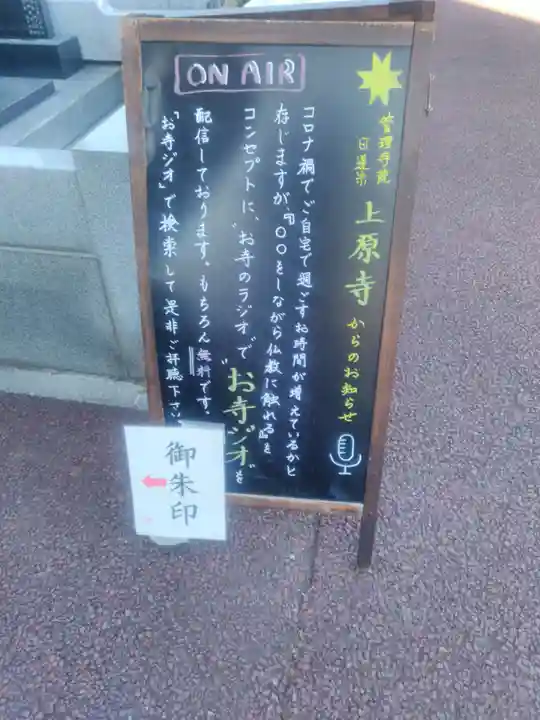 ON AIR
管理寺院
日蓮宗
上原寺
からのお知らせ
コロナ禍でご自宅で過ごすお時間が増えているかと
存じますが、『〇〇をしながら仏教に触れる』を
コンセプトに、"お寺のラジオ"で"お寺ジオ"を
配信しております。もちろん無料です。
『お寺ジオ』で検索して是非ご拝聴下さい。
御朱印